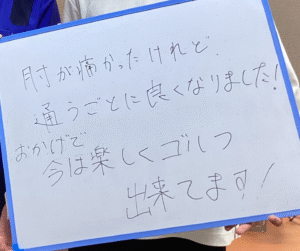 肘が痛かったけれど、
通うごとに良くなりました!
おかげで
今は楽しくゴルフ
出来てます!